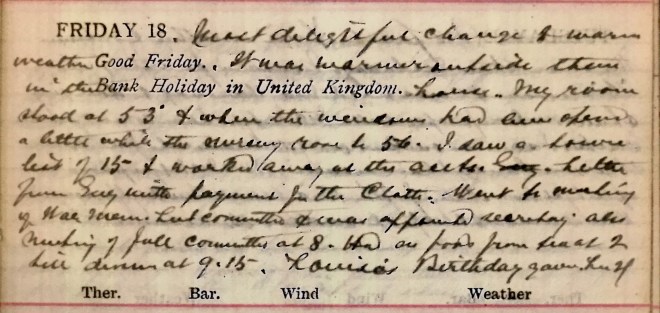 FRIDAY 18. Most delightful change to warm
weather Good Friday.. It was warmer outside than
in the Bank Holiday in United Kingdom. house. My room
stood at 53° & when the windows had been open
a little while the nursery rose to 56. I saw a house
list of 15 & worked away at the accts. letter
from Guy with payment for the Cloth. Went to meeting
of War Mem. committee & was appointed secretary. also
meeting of full committee at 8. Had no food from at 2
till dinner at 9.15. Louisa's Birthday gave her
Ther. Bar. Wind Weather